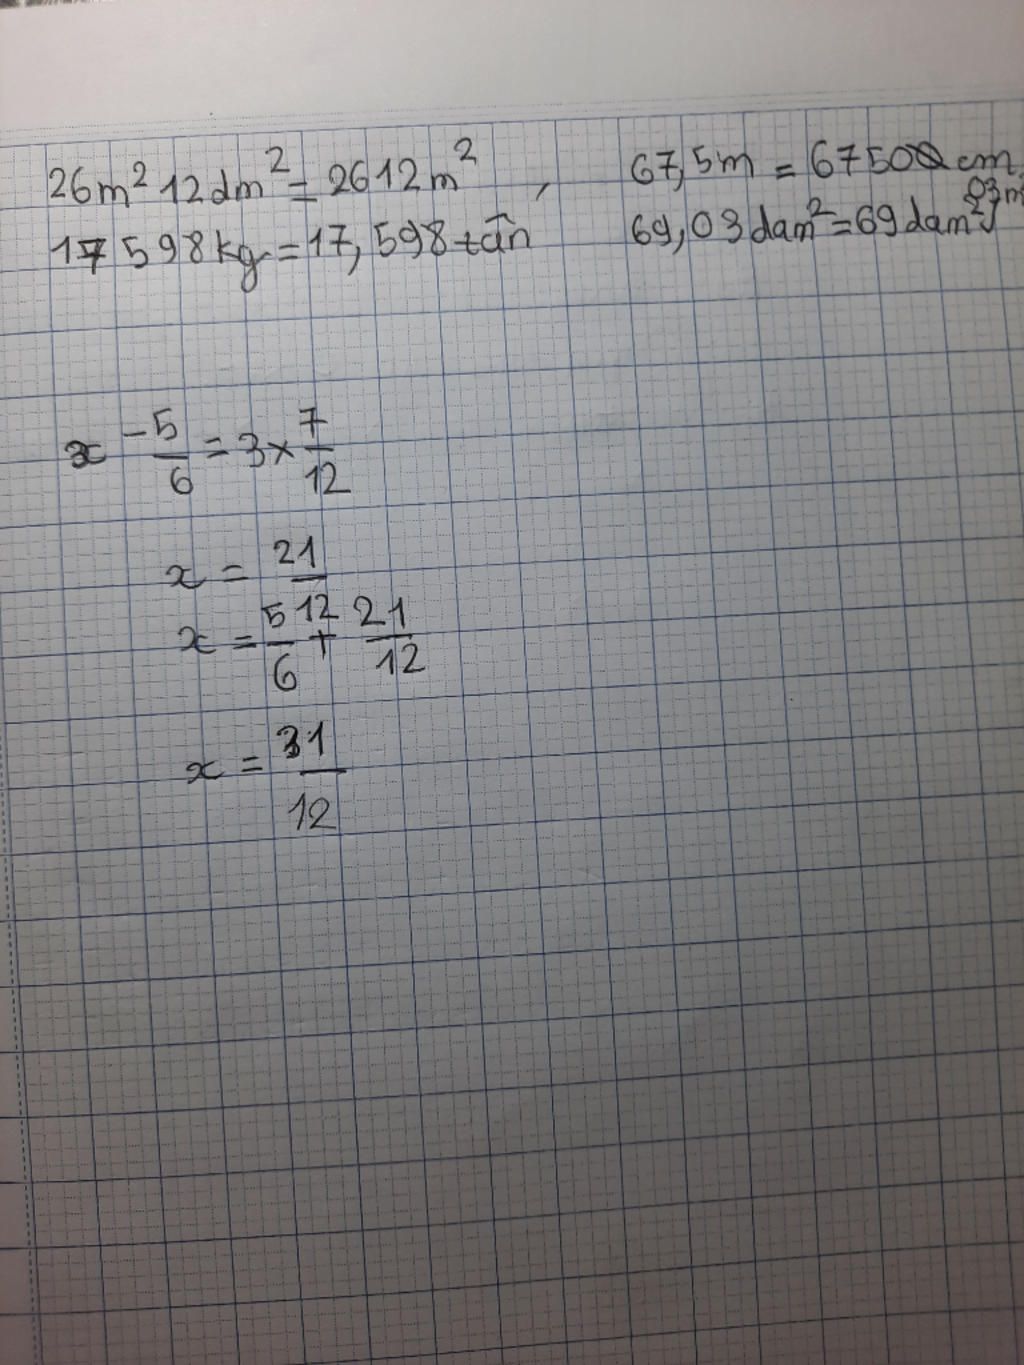 26m² 12dm² = 2612m² , 67,5m = 67500cm
17 598kg = 17,598 tấn 69,03dam² = 69dam² 03m²
x - 5/6 = 3 × 7/12
x = 21/12
x = 5/6 + 21/12
x = 31/12